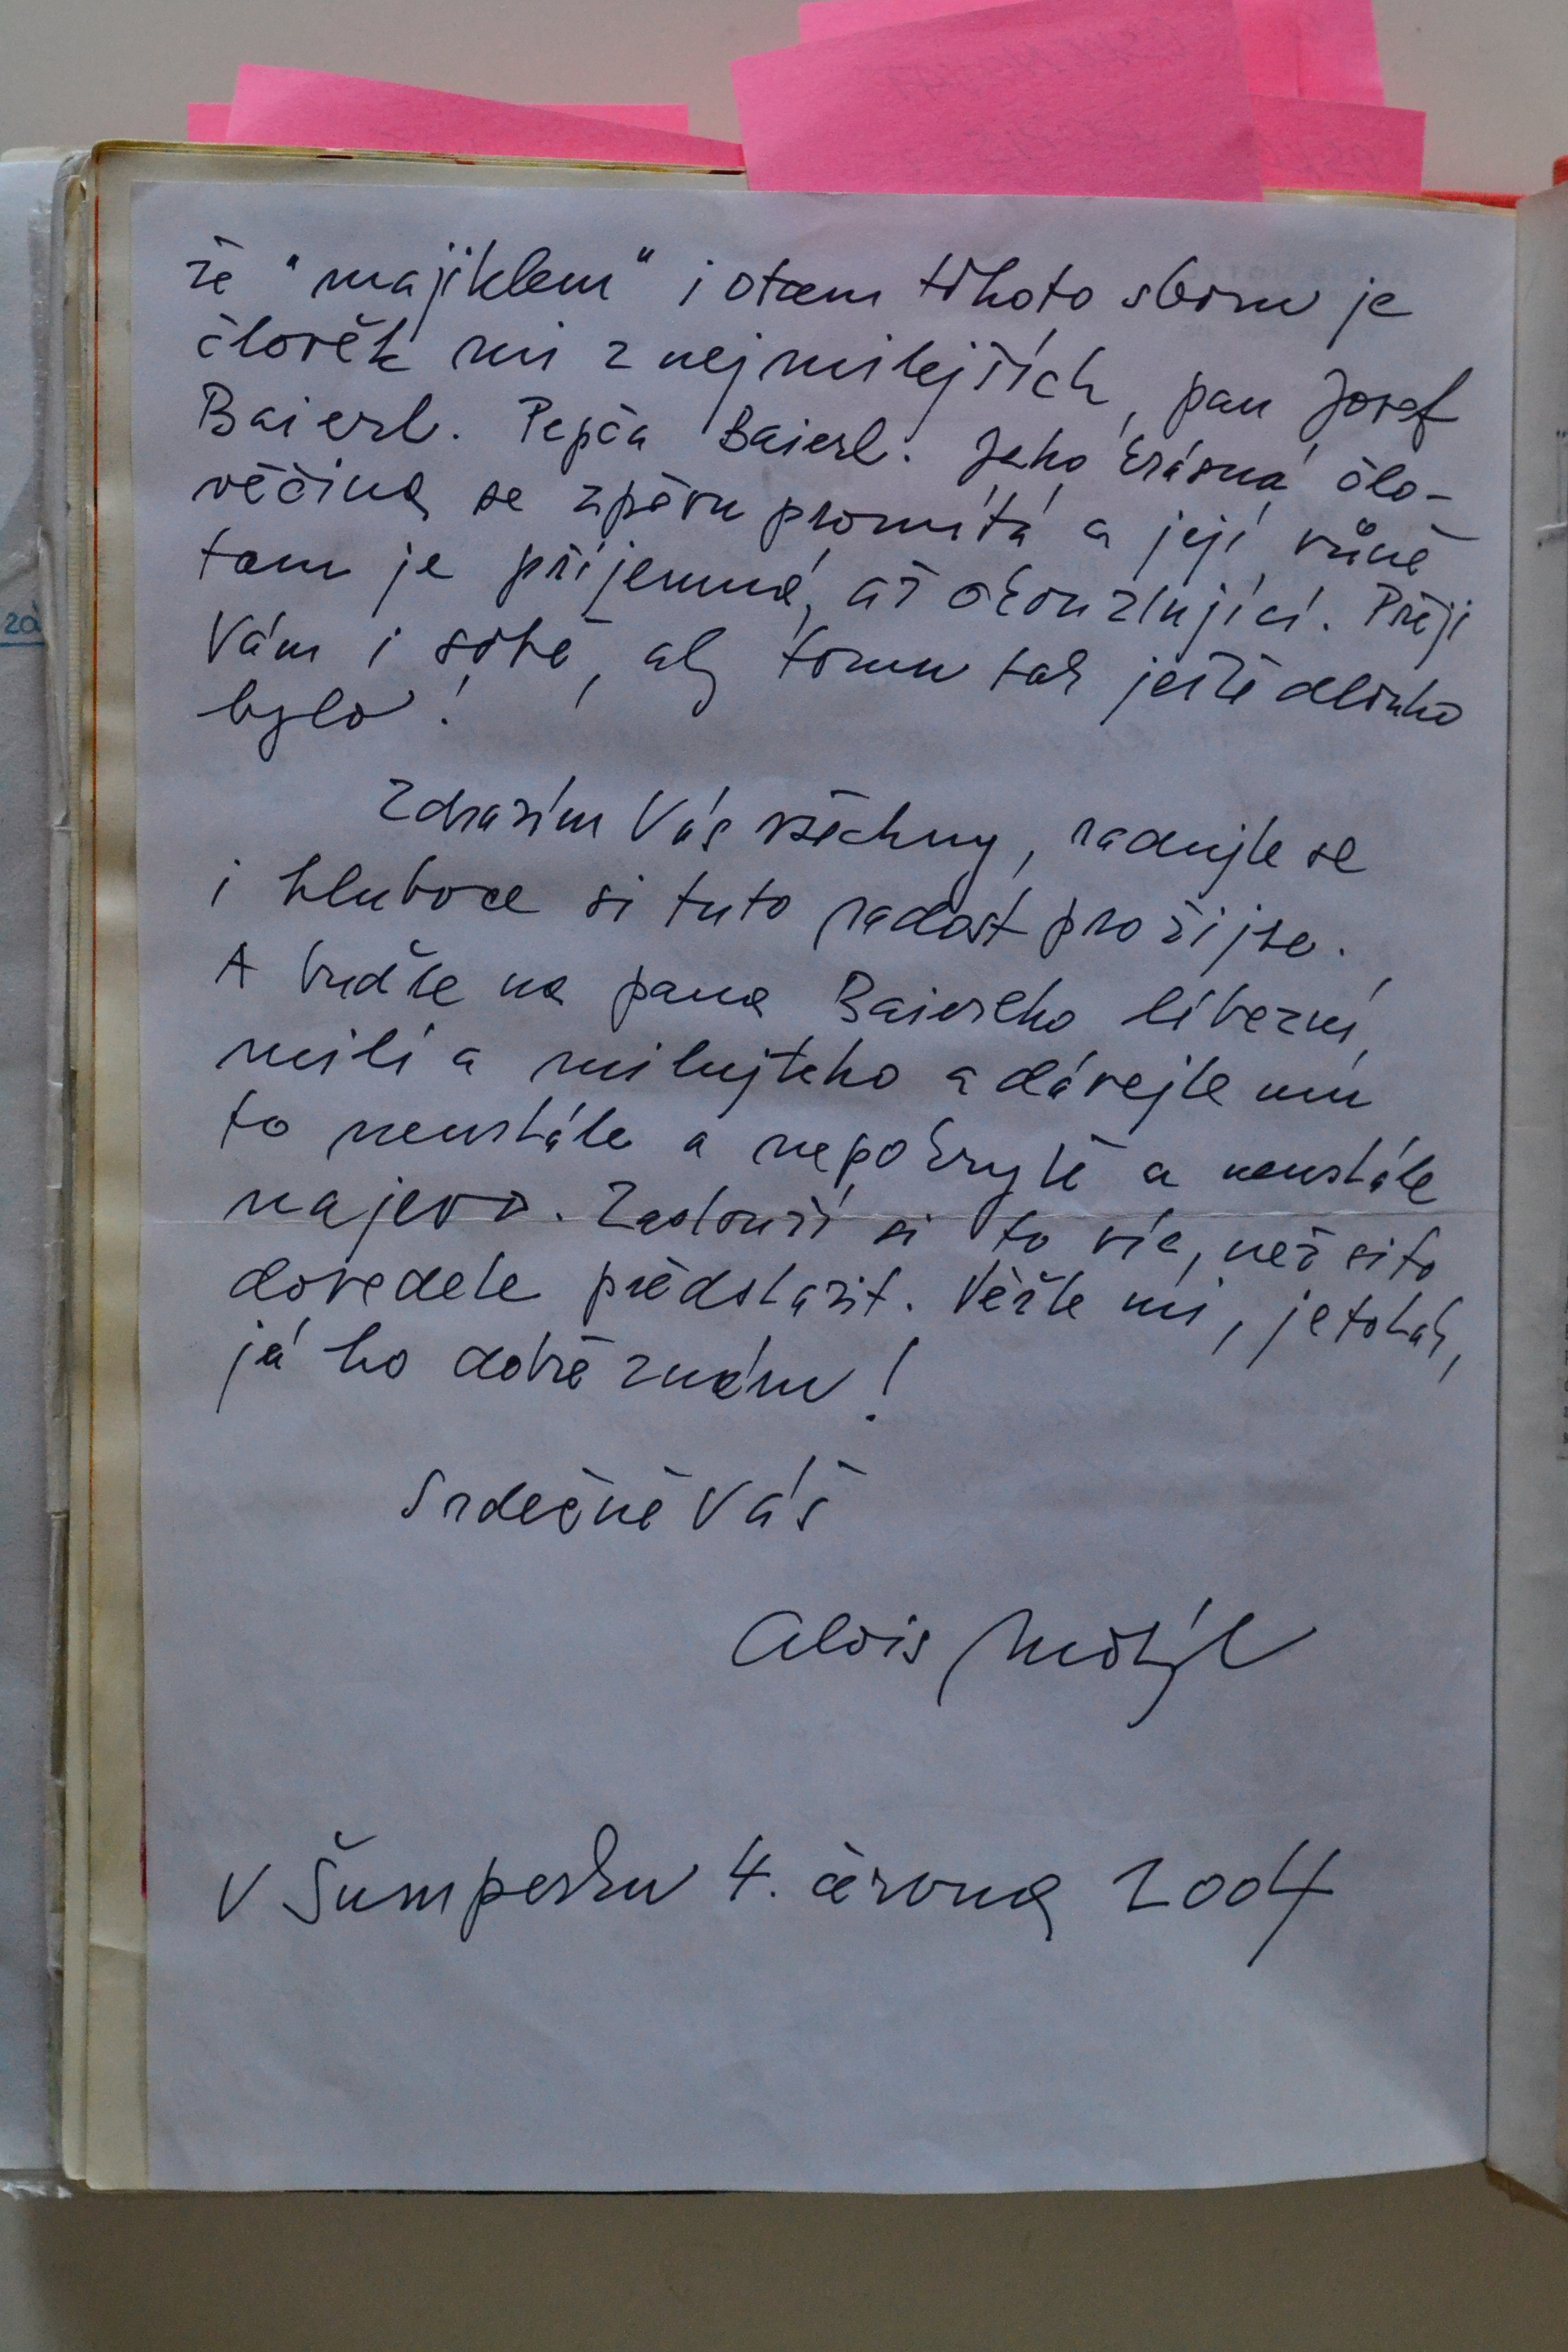 že "majiklem" i otcem tohoto sboru je
člověk mi z nejmilejších, pan Josef
Baierl. Pepča Baierl. Jeho krásná člo-
věčina se zpěvu promítá a její vůně
tam je příjemná, až okouzlující. Přeji
Vám i sobě, aby tomu tak ještě dlouho
bylo!
Zdravím Vás všechny, radujte se
i hluboce si tuto radost prožijte.
A buďte na pana Baierlho líbezní,
milí a milujteho a dávejte mu
to neustále a nepokrytě a neustále
najevo. Zaslouží si to víc, než si to
dovedete představit. Věřte mi, je to tak,
já ho dobře znám!
Srdečně Váš
Alois Motýl
V Šumperku 4. června 2004